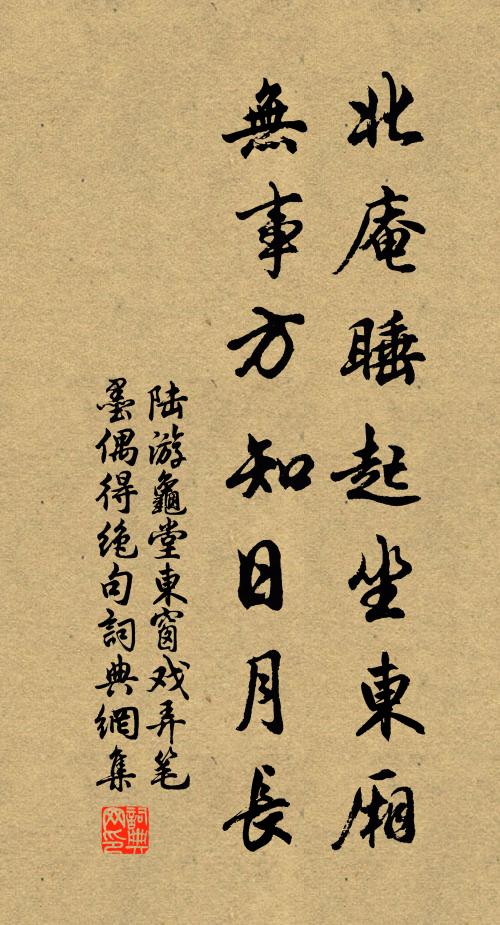 北庵睡起坐東厢
無事方知日月長
陆游龜堂東窗戏弄笔
墨偶得绝句詞典網集
詞典网印